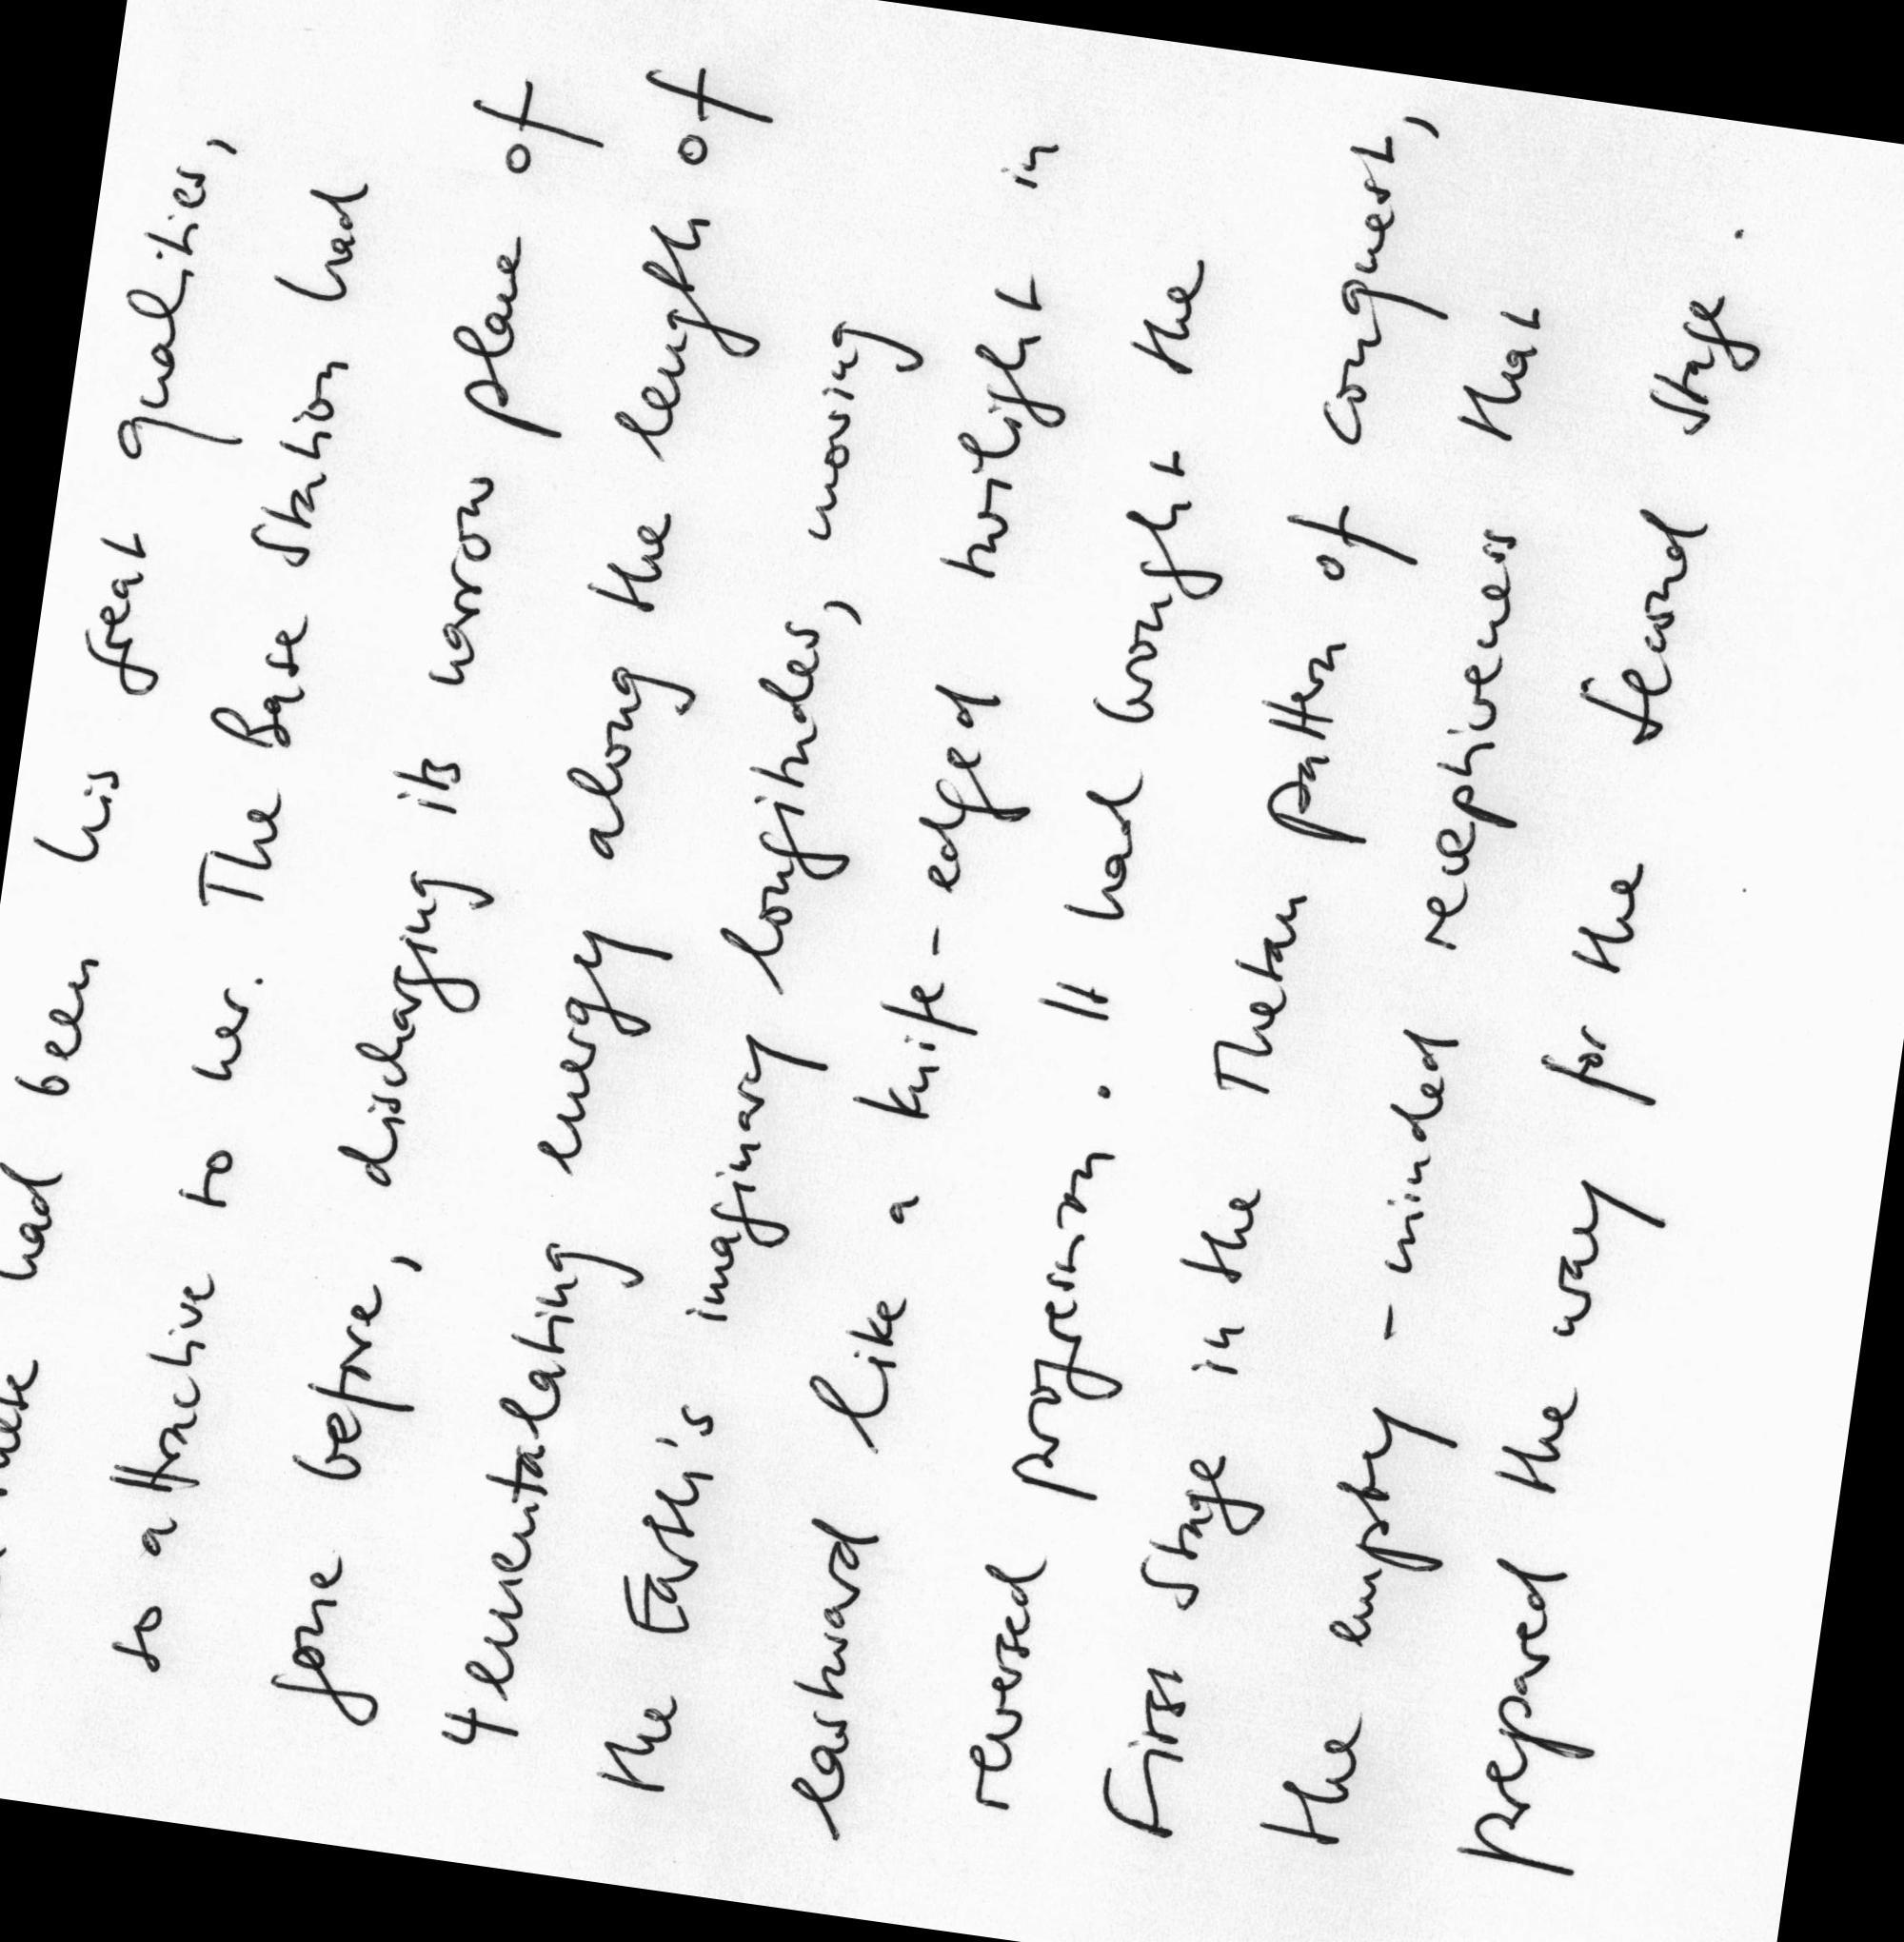 had been his great qualities,
so attractive to her. The Base Station had
gone before, discharging its narrow plane of
4ementalating energy along the length of
the Earth's imaginary longitudes, moving
eastward like a knife-edged twilight in
reversed progression. It had brought the
First Stage in the Thetan pattern of conquest,
the empty-minded receptiveness that
prepared the way for the Second Stage.